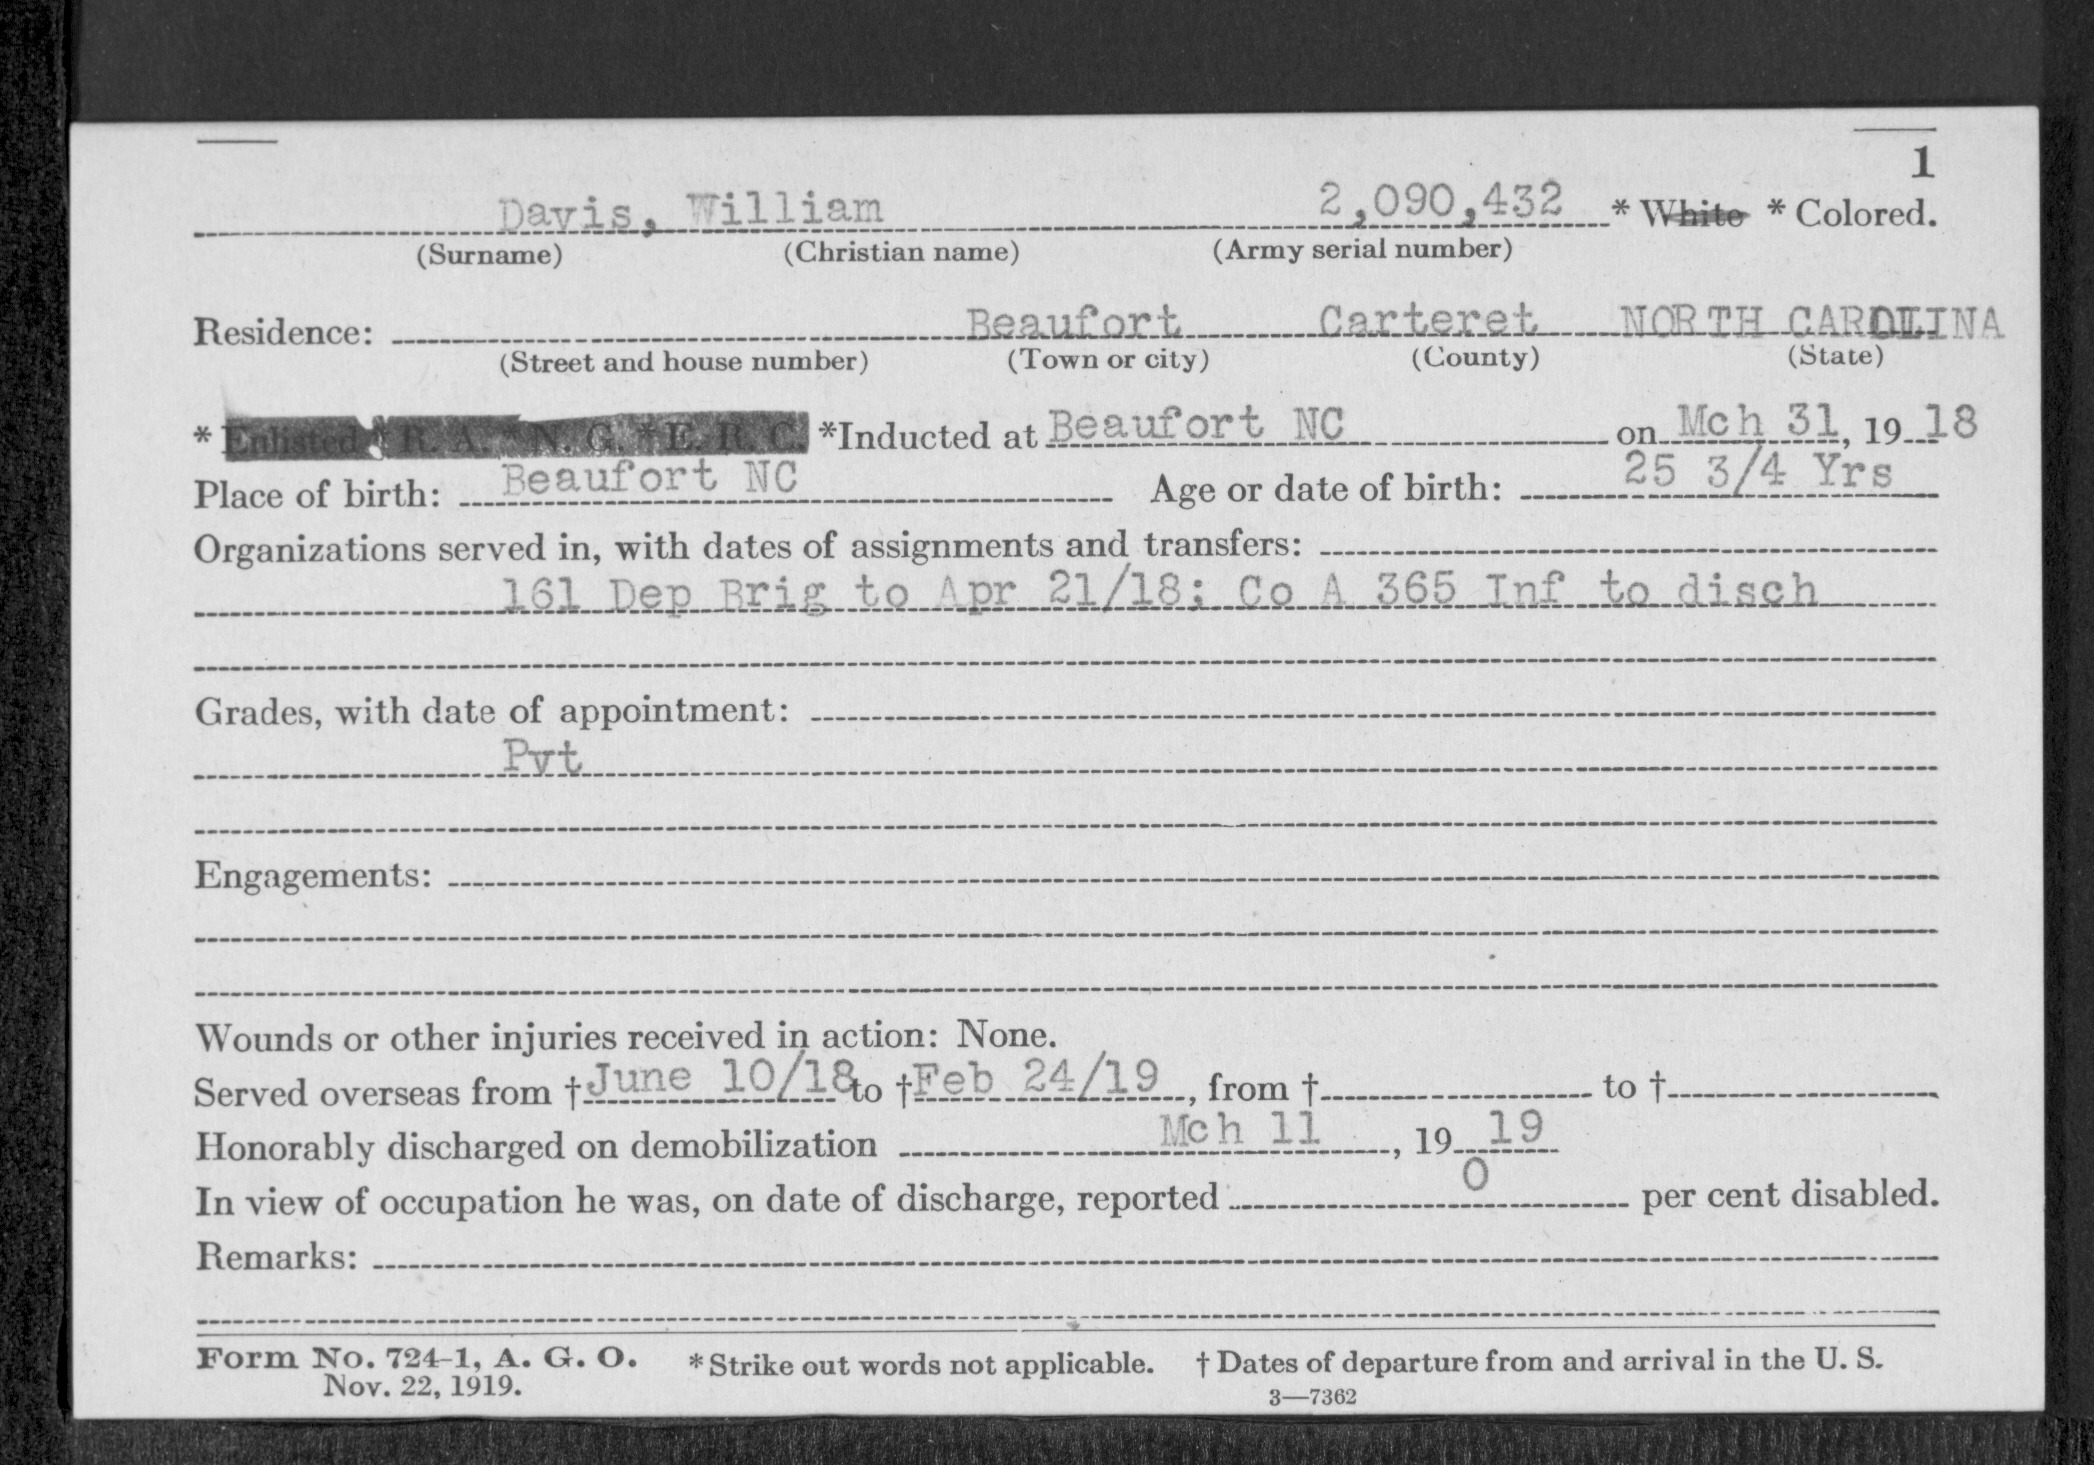 1
Davis, William 2,090,432 * White * Colored.
(Surname) (Christian name) (Army serial number)
Residence: Beaufort Carteret NORTH CAROLINA
(Street and house number) (Town or city) (County) (State)
* Enlisted * R. A. * N. G. * E. R. C. *Inducted at Beaufort NC on Mch 31, 19 18
Place of birth: Beaufort NC Age or date of birth: 25 3/4 Yrs
Organizations served in, with dates of assignments and transfers:
161 Dep Brig to Apr 21/18; Co A 365 Inf to disch
Grades, with date of appointment:
Pvt
Engagements:
Wounds or other injuries received in action: None.
Served overseas from † June 10/18 to † Feb 24/19, from † to †
Honorably discharged on demobilization Mch 11, 19 19
In view of occupation he was, on date of discharge, reported 0 per cent disabled.
Remarks:
Form No. 724-1, A. G. O. * Strike out words not applicable. † Dates of departure from and arrival in the U. S.
Nov. 22, 1919. 3—7362